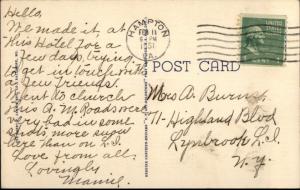 Hello.
We made it, at
this Hotel for a
few days, trying
to get in touch with
a few friends.
Went to church
this A.M. Roads were
very bad in some
spots more sugar
here than on L.I.
Love from all.
Lovingly
Mamie.
HAMPTON
FEB 11
PM
1951
VA.
POST CARD
Mrs A. Burns
71-Highland Blvd
Lynbrook L.I.
N.Y.